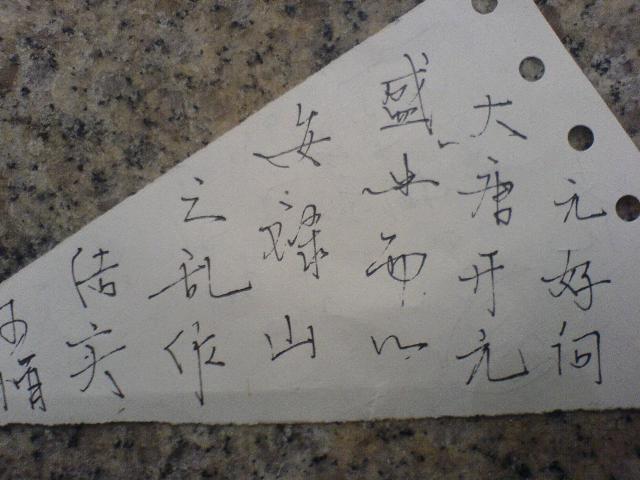 元好问
大唐开元
盛世而以
安禄山
之乱作
结实